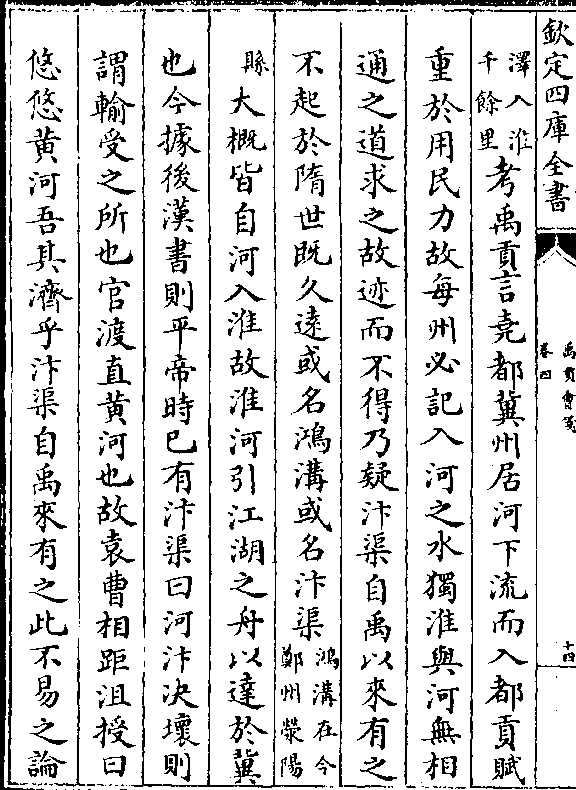 欽定四庫全書
禹貢會箋
卷四
十四
澤入淮
千餘里
考禹貢言堯都冀州居河下流而入都貢賦
重於用民力故每州必記入河之水獨淮與河無相
通之道求之故迹而不得乃疑汴渠自禹以來有之
不起於隋世既久遠或名鴻溝或名汴渠
鴻溝在今
鄭州滎陽
縣
大概皆自河入淮故淮河引江湖之舟以達於冀
也今據後漢書則平帝時已有汴渠曰河汴决壞則
謂輸受之所也官渡直黄河也故袁曹相距沮授曰
悠悠黄河吾其濟乎汴渠自禹來有之此不易之論